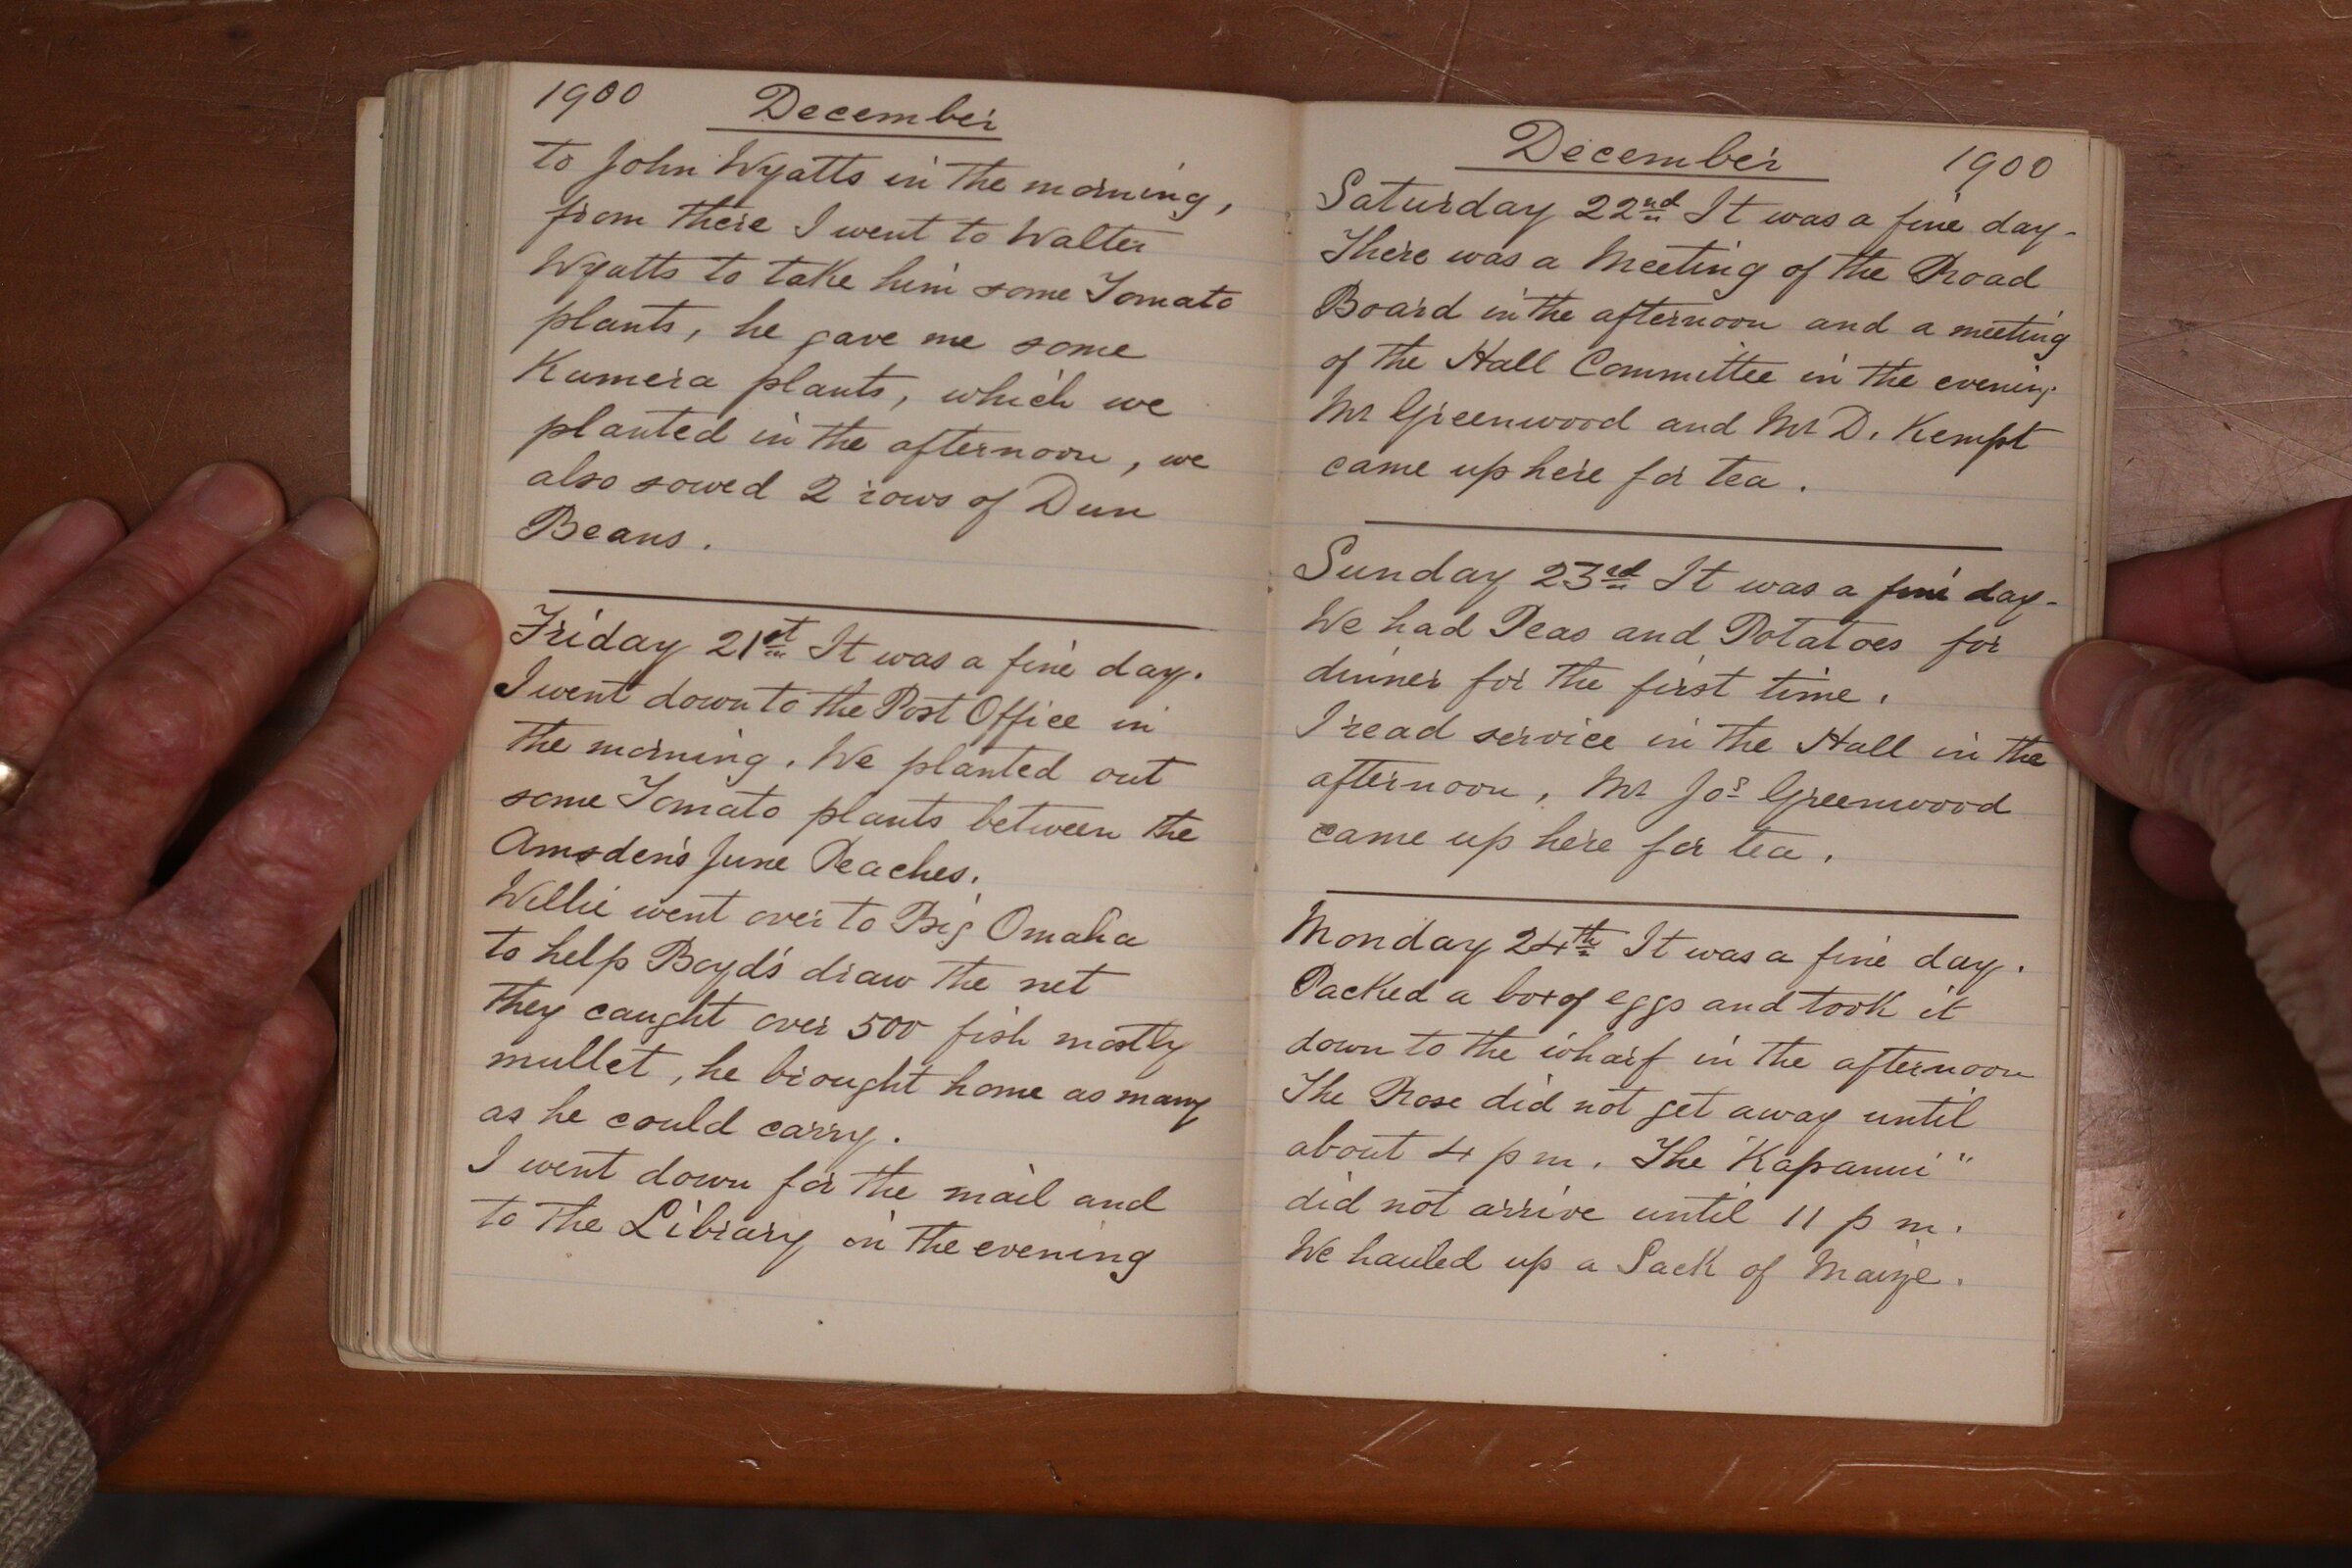 1900 December
to John Wyatts in the morning,
from there I went to Walter
Wyatts to take him some Tomato
plants, he gave me some
Kumera plants, which we
planted in the afternoon, we
also sowed 2 rows of Dun
Beans.
Friday 21st It was a fine day.
I went down to the Post Office in
the morning. We planted out
some Tomato plants between the
Amsden's June Peaches.
Willie went over to Big Omaha
to help Boyd's draw the net
they caught over 500 fish mostly
mullet, he brought home as many
as he could carry.
I went down for the mail and
to the Library in the evening
December 1900
Saturday 22nd It was a fine day-
There was a Meeting of the Road
Board in the afternoon and a meeting
of the Hall Committee in the evening.
Mr Greenwood and Mr D. Kempt
came up here for tea.
Sunday 23rd It was a fine day-
We had Peas and Potatoes for
dinner for the first time.
I read service in the Hall in the
afternoon, Mr Jos Greenwood
came up here for tea.
Monday 24th It was a fine day.
Packed a box of eggs and took it
down to the wharf in the afternoon
The Rose did not get away until
about 4 p m. The "Kapanui"
did not arrive until 11 p m.
We hauled up a Sack of Maize.